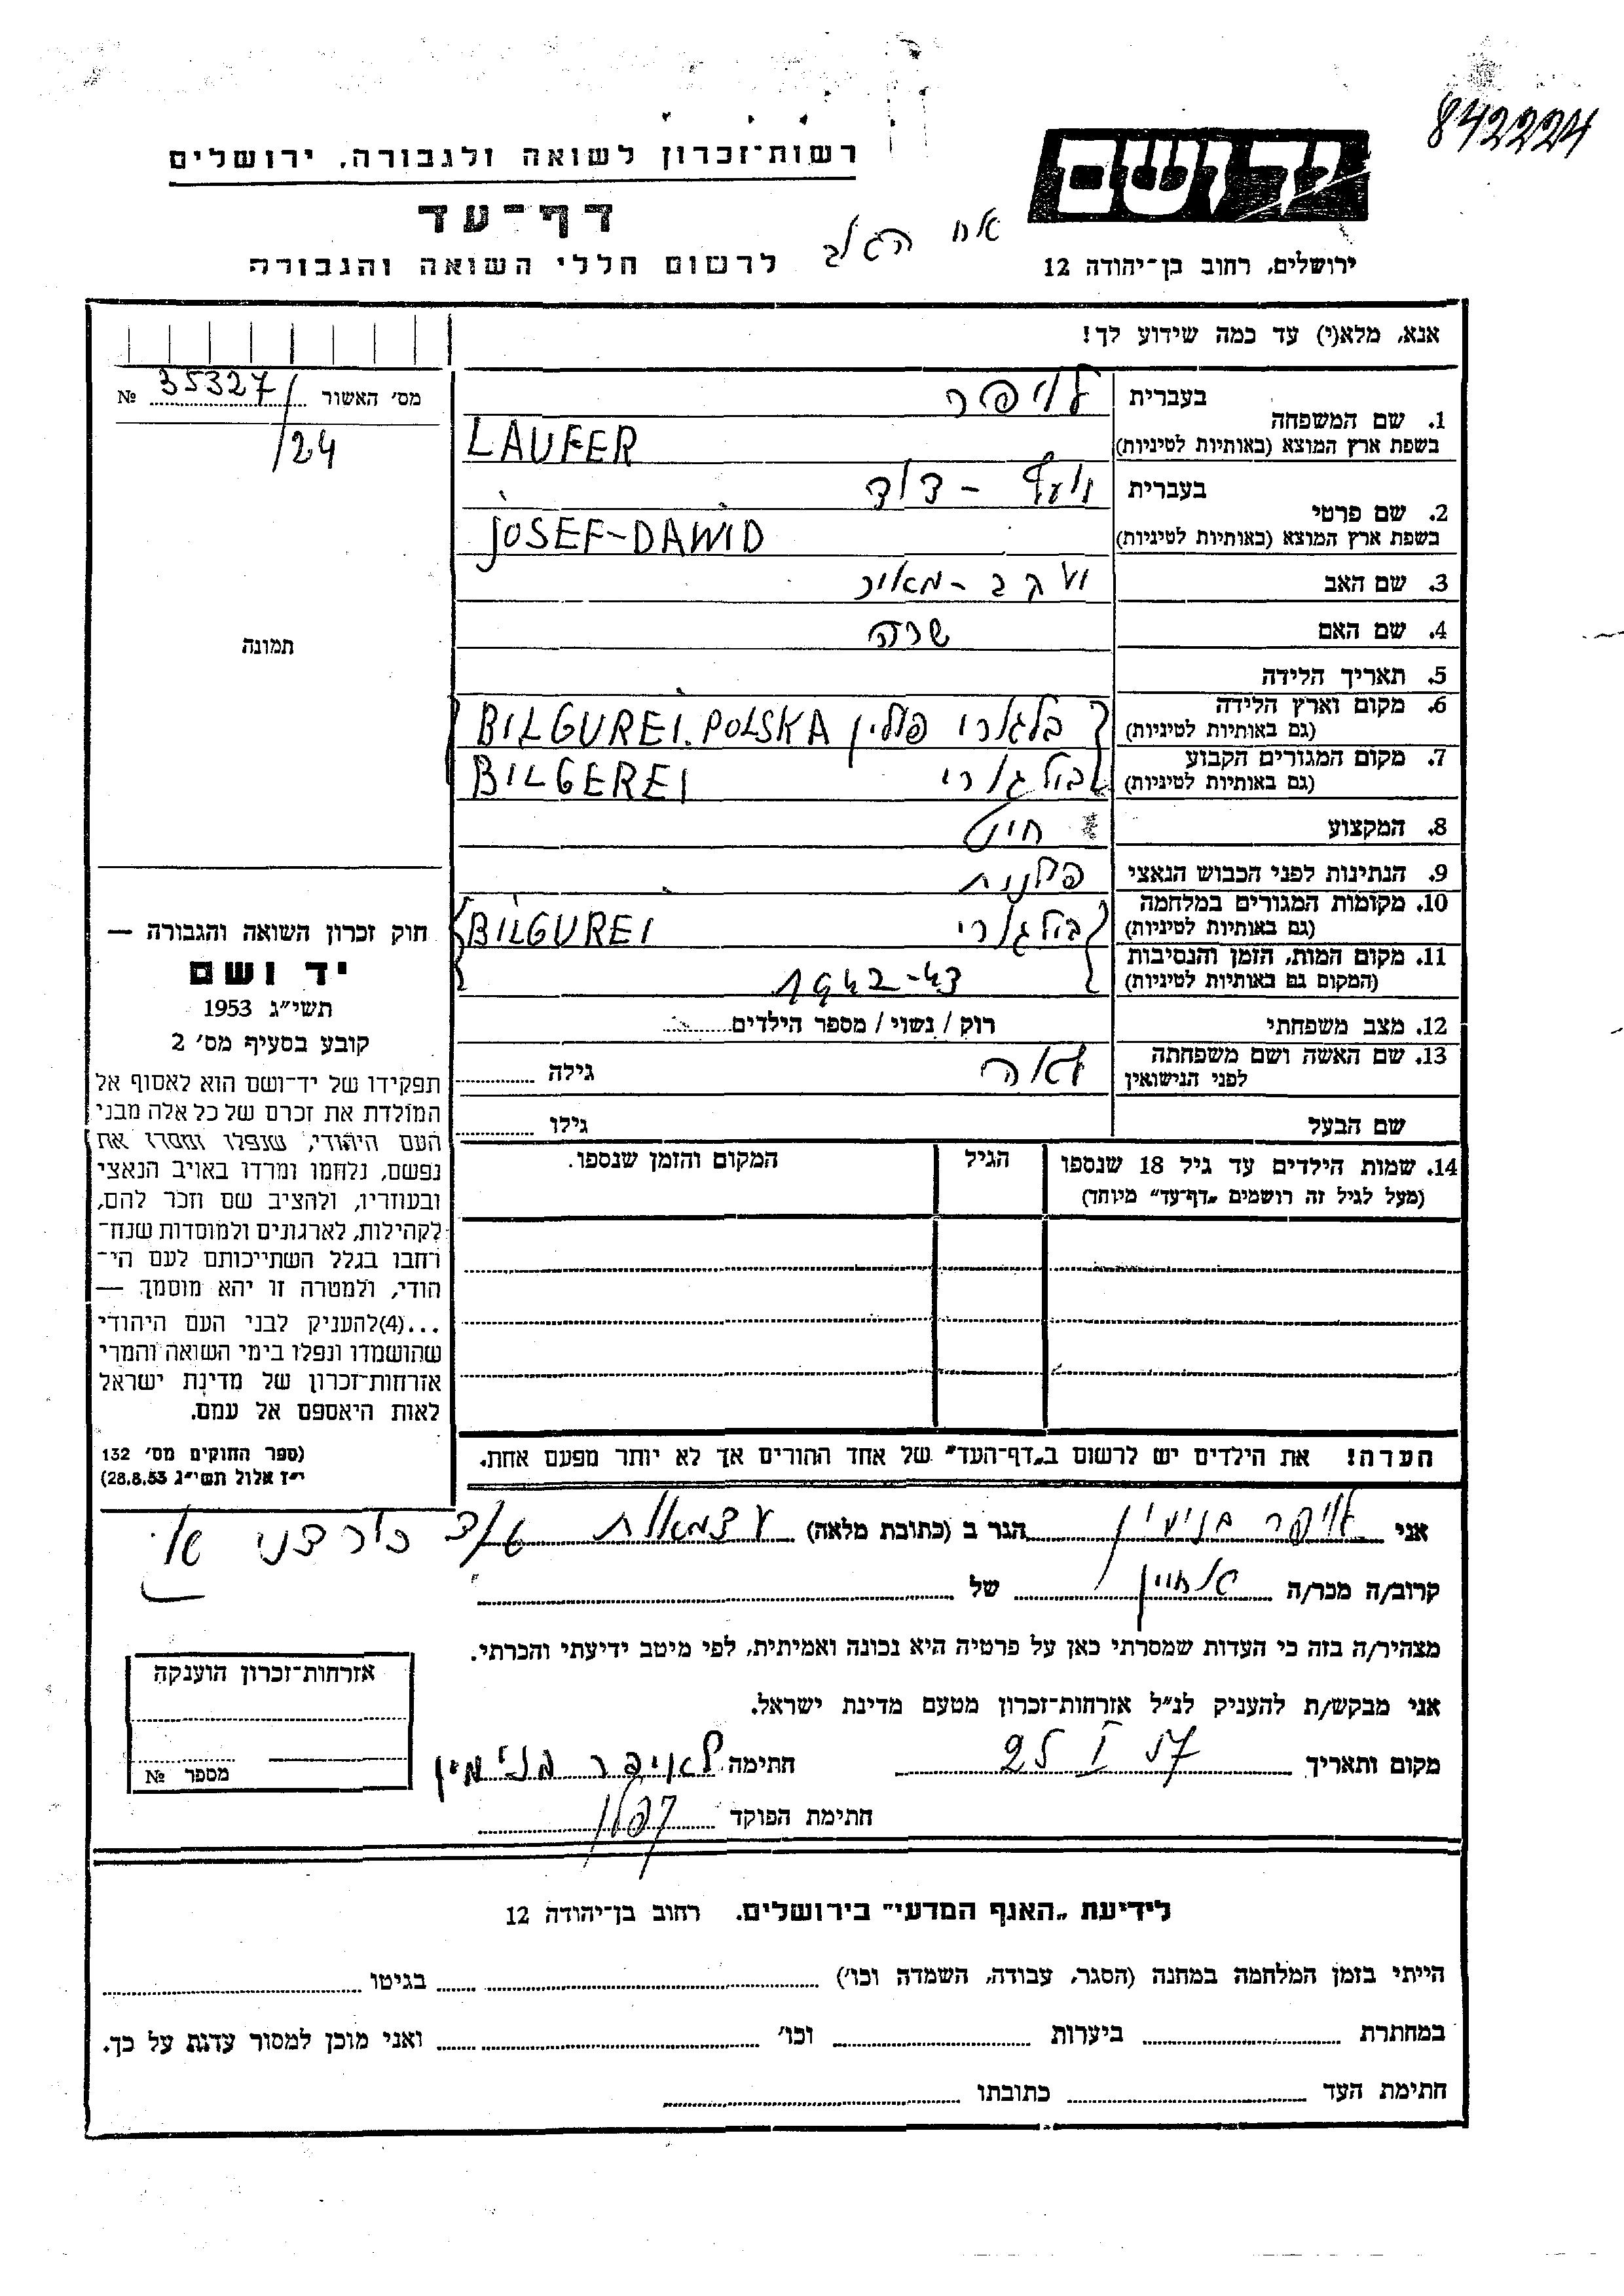 842224
רשות־זכרון לשואה ולגבורה, ירושלים
יד ושם
דף־עד
לרשום חללי השואה והגבורה
ירושלים, רחוב בן־יהודה 12
אנא, מלא(י) עד כמה שידוע לך!
מס׳ האשור 35327/ №
/24
1. שם המשפחה בעברית לויפר
בשפת ארץ המוצא (באותיות לטיניות) LAUFER
2. שם פרטי בעברית יוסף - דוד
בשפת ארץ המוצא (באותיות לטיניות) JOSEF-DAWID
3. שם האב יעקב - מאיר
4. שם האם שרה
תמונה
5. תאריך הלידה
6. מקום וארץ הלידה בלגורי פולין BILGUREI. POLSKA
(גם באותיות לטיניות)
7. מקום המגורים הקבוע בולגורי BILGEREI
(גם באותיות לטיניות)
8. המקצוע חייט
9. הנתינות לפני הכבוש הנאצי פולנית
10. מקומות המגורים במלחמה בולגורי BILGUREI
(גם באותיות לטיניות)
11. מקום המות, הזמן והנסיבות 1942-43
(המקום גם באותיות לטיניות)
12. מצב משפחתי רוק / נשוי / מספר הילדים
13. שם האשה ושם משפחתה לאה גילה
לפני הנישואין
שם הבעל גילו
14. שמות הילדים עד גיל 18 שנספו הגיל המקום והזמן שנספו.
(מעל לגיל זה רושמים „דף־עד״ מיוחד)
חוק זכרון השואה והגבורה —
יד ושם
תשי״ג 1953
קובע בסעיף מס׳ 2
תפקידו של יד־ושם הוא לאסוף אל
המולדת את זכרם של כל אלה מבני
העם היהודי, שנפלו ומסרו את
נפשם, נלחמו ומרדו באויב הנאצי
ובעוזריו, ולהציב שם וזכר להם,
לקהילות, לארגונים ולמוסדות שנח־
רחבו בגלל השתייכותם לעם הי־
הודי, ולמטרה זו יהא מוסמך —
...(4)להעניק לבני העם היהודי
שהושמדו ונפלו בימי השואה והמרי
אזרחות־זכרון של מדינת ישראל
לאות היאספם אל עמם.
(ספר החוקים מס׳ 132
י״ז אלול תשי״ג 28.8.53)
הערה! את הילדים יש לרשום ב„דף־העד״ של אחד ההורים אך לא יותר מפעם אחת.
אני לויפר בנימין הגר ב (כתובת מלאה) עצמאות
קרוב/ה מכר/ה של
מצהיר/ה בזה כי העדות שמסרתי כאן על פרטיה היא נכונה ואמיתית, לפי מיטב ידיעתי והכרתי.
אני מבקש/ת להעניק לנ״ל אזרחות־זכרון מטעם מדינת ישראל.
מקום ותאריך 25 I 57 חתימה לאויפר בנימין
חתימת הפוקד
אזרחות־זכרון הוענקה
מספר №
לידיעת „האגף המדעי״ בירושלים. רחוב בן־יהודה 12
הייתי בזמן המלחמה במחנה (הסגר, עבודה, השמדה וכו׳) בגיטו
במחתרת ביערות וכו׳ ואני מוכן למסור עדות על כך.
חתימת העד כתובתו